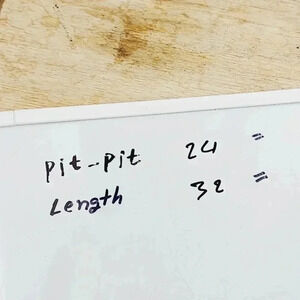 Pit-Pit 24 "
Length 32 "